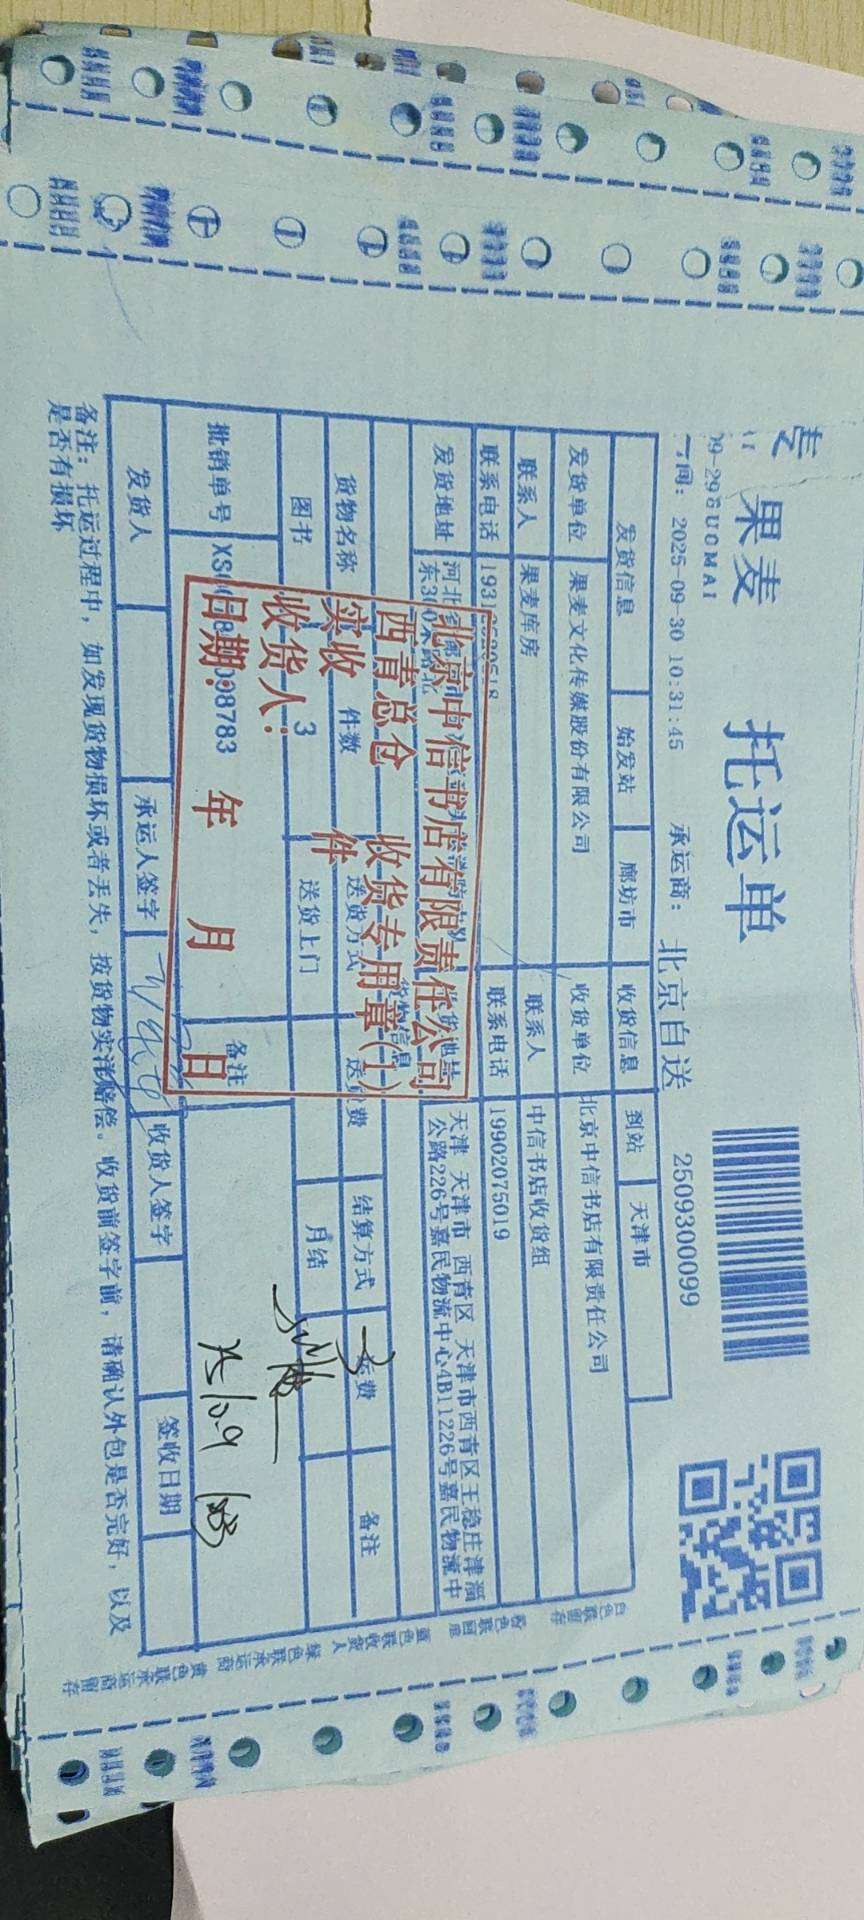 果麦 托运单
09-29GUOMAI
间: 2025-09-30 10:31:45 承运商: 北京自送 2509300099
发货信息 始发站 廊坊市 收货信息 到站 天津市
发货单位 果麦文化传媒股份有限公司 收货单位 北京中信书店有限责任公司
联系人 果麦库房 联系人 中信书店收货组
联系电话 联系电话 19902075019
发货地址 河北 天津 天津市 西青区 天津市西青区王稳庄津淄
公路226号嘉民物流中心4B11226号嘉民物流中
货物信息
货物名称 件数 送货方式 送货费 结算方式 备注
图书 3 送货上门 月结
批销单号 备注
发货人 承运人签字 收货人签字 签收日期
备注: 托运过程中, 如发现货物损坏或者丢失, 按货物实洋赔偿。收货前签字前, 请确认外包是否完好, 以及
是否有损坏
北京中信书店有限责任公司
西青总仓 收货专用章(1)
实收 件
收货人:
日期: 年 月 日
25/10.9
白色联留存
粉色联回单
蓝色联收货人
绿色联承运商
黄色联承运商留存